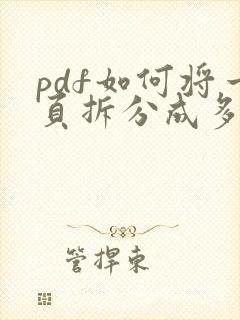 pdf如何将一
页拆分成多
管捍东